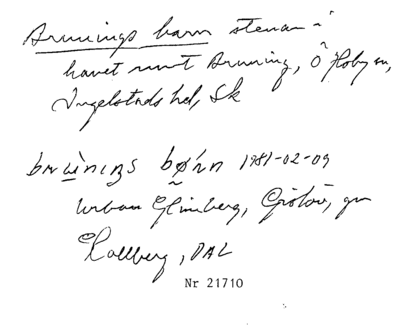 Brunings barn stenar i
havet runt Bruning, Ö Hoby sn,
Ingelstads hd, Sk
bruniŋs børn 1981-02-09
Urban Glimberg, Gislöv, gm
Hallberg, DAL
Nr 21710